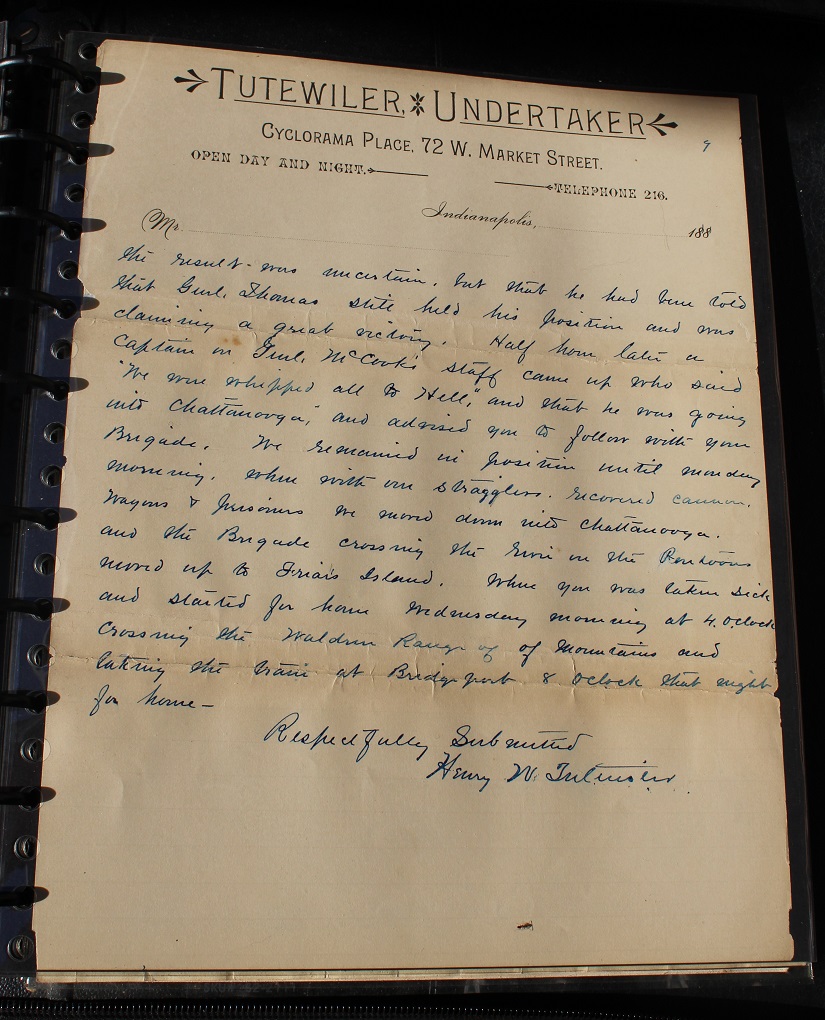 TUTEWILER, UNDERTAKER
CYCLORAMA PLACE, 72 W. MARKET STREET.
OPEN DAY AND NIGHT. TELEPHONE 216.
9
Indianapolis, 188
Mr.
the result was uncertain, but that he had been told
that Genl. Thomas still held his position and was
claiming a great victory. Half hour later a
Captain on Genl. McCook's staff came up who said
"We were whipped all to Hell," and that he was going
into Chattanooga, and advised you to follow with your
Brigade. We remained in position until monday
morning, when with our stragglers, recovered cannon,
Wagons & prisoners we moved down into Chattanooga.
and the Brigade crossing the river on the Pontoons
moved up to Friars Island. When you was taken sick
and started for home Wednesday morning at 4. Oclock
crossing the Waldron Range of of Mountains and
taking the train at Bridgeport 8 oclock that night
for home —
Respectfully Submitted
Henry W. Tutewiler.